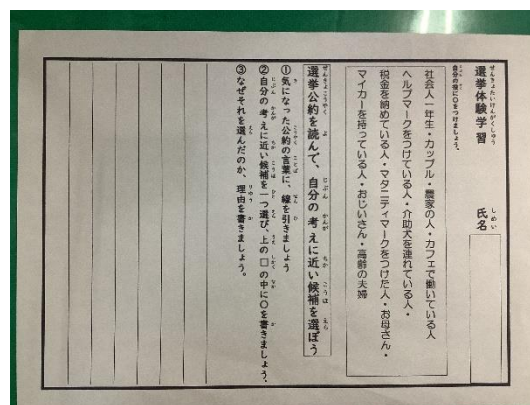 選挙体験学習
氏名
自分の役に〇をつけましょう。
社会人一年生・カップル・農家の人・カフェで働いている人
ヘルプマークをつけている人・介助犬を連れている人・
税金を納めている人・マタニティマークをつけた人・お母さん・
マイカーを持っている人・おじいさん・高齢の夫婦
選挙公約を読んで、自分の考えに近い候補を選ぼう
①気になった公約の言葉に、線を引きましょう
②自分の考えに近い候補を一つ選び、上の□の中に〇を書きましょう。
③なぜそれを選んだのか、理由を書きましょう。